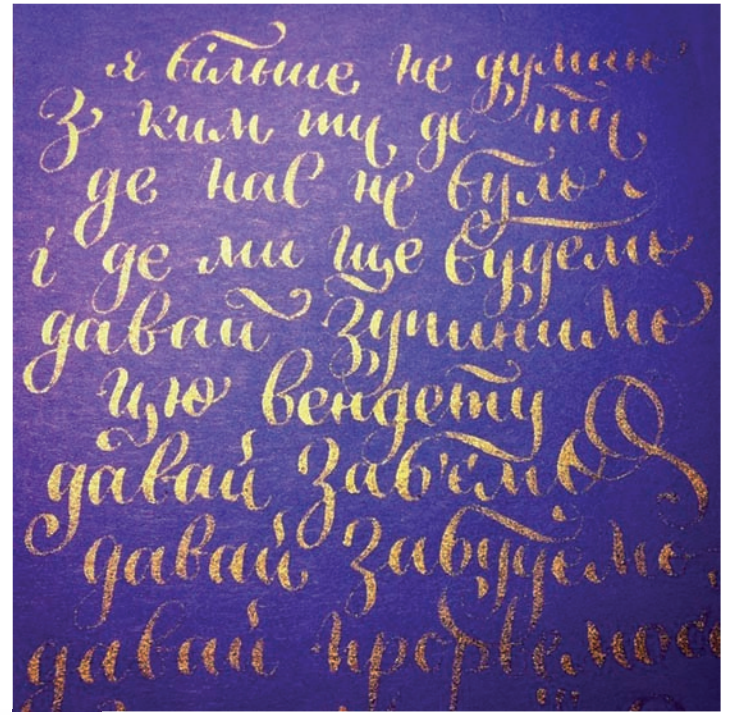 я більше не думаю
з ким ти де ти
де нас не було
і де ми ще будемо
давай зупинимо
цю вендету
давай заб'ємо
давай забудемо
давай прорвемось